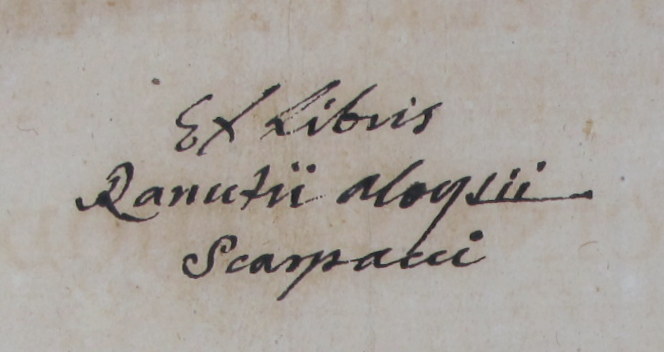 Ex Libris
Ranutii Aloysii
Scarpacci